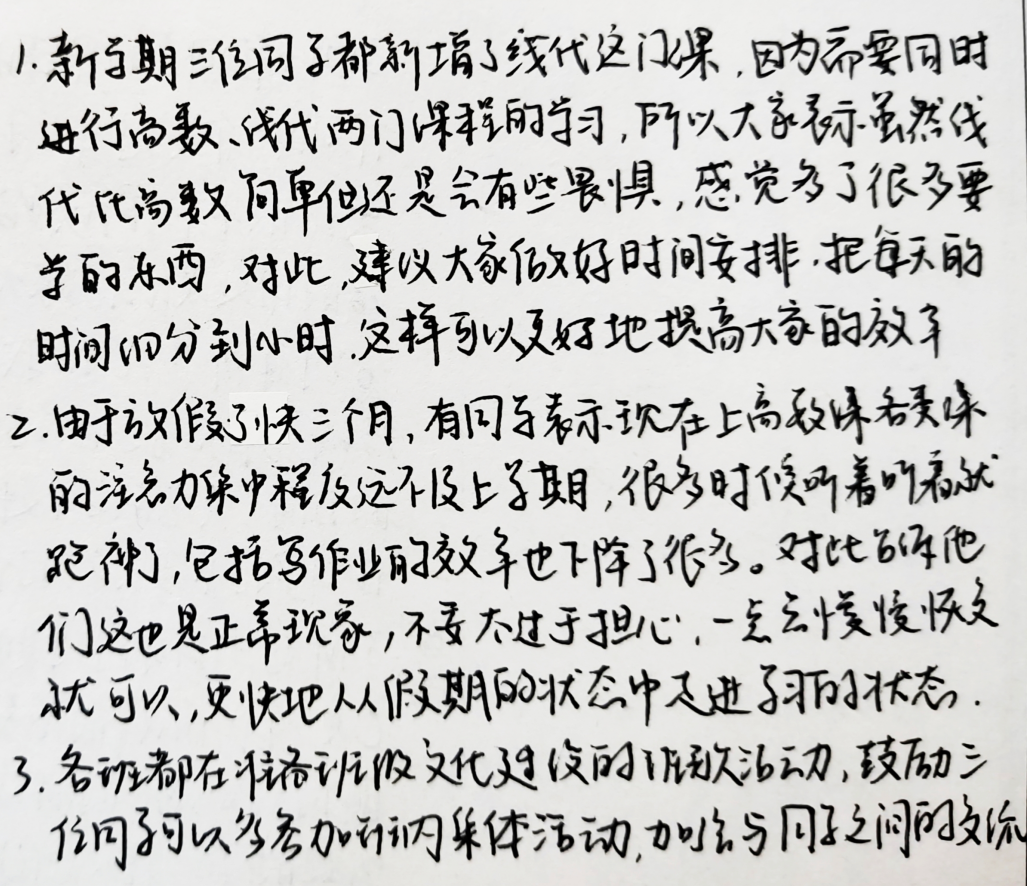 1. 新学期三位同学都新增了线代这门课，因为需要同时
进行高数、线代两门课程的学习，所以大家表示虽然线
代比高数简单但还是会有些畏惧，感觉多了很多要
学的东西，对此，建议大家做好时间安排，把每天的
时间细分到小时，这样可以更好地提高大家的效率
2. 由于放假了快三个月，有同学表示现在上高数课各类课
的注意力集中程度远不及上学期，很多时候听着听着就
跑神了，包括写作业的效率也下降了很多。对此告诉他
们这也是正常现象，不要太过于担心，一点点慢慢恢复
就可以，更快地从假期的状态中走进学习的状态.
3. 各班都在准备班级文化建设的班歌活动，鼓励三
位同学可以多参加班内集体活动，加强与同学之间的交流